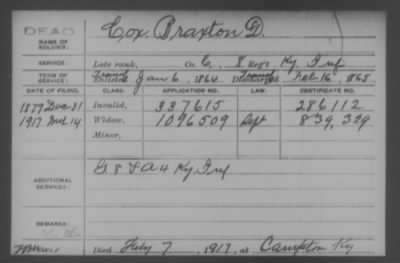 DEAD
NAME OF SOLDIER:
Cox, Braxton D.
SERVICE:
Late rank, Co. C, 8 Reg't Ky. Inf
TERM OF SERVICE:
Enlisted Jan 6, 1864 Discharged Feb 16, 1865
DATE OF FILING. CLASS. APPLICATION NO. LAW. CERTIFICATE NO.
1879 Dec 31 Invalid, 337615 286112
1917 Mch 14 Widow, 1096509 Sept 839,329
Minor,
ADDITIONAL SERVICES:
G 8 & A 4 Ky. Inf
REMARKS:
Died Feby 7, 1917, at Campton Ky